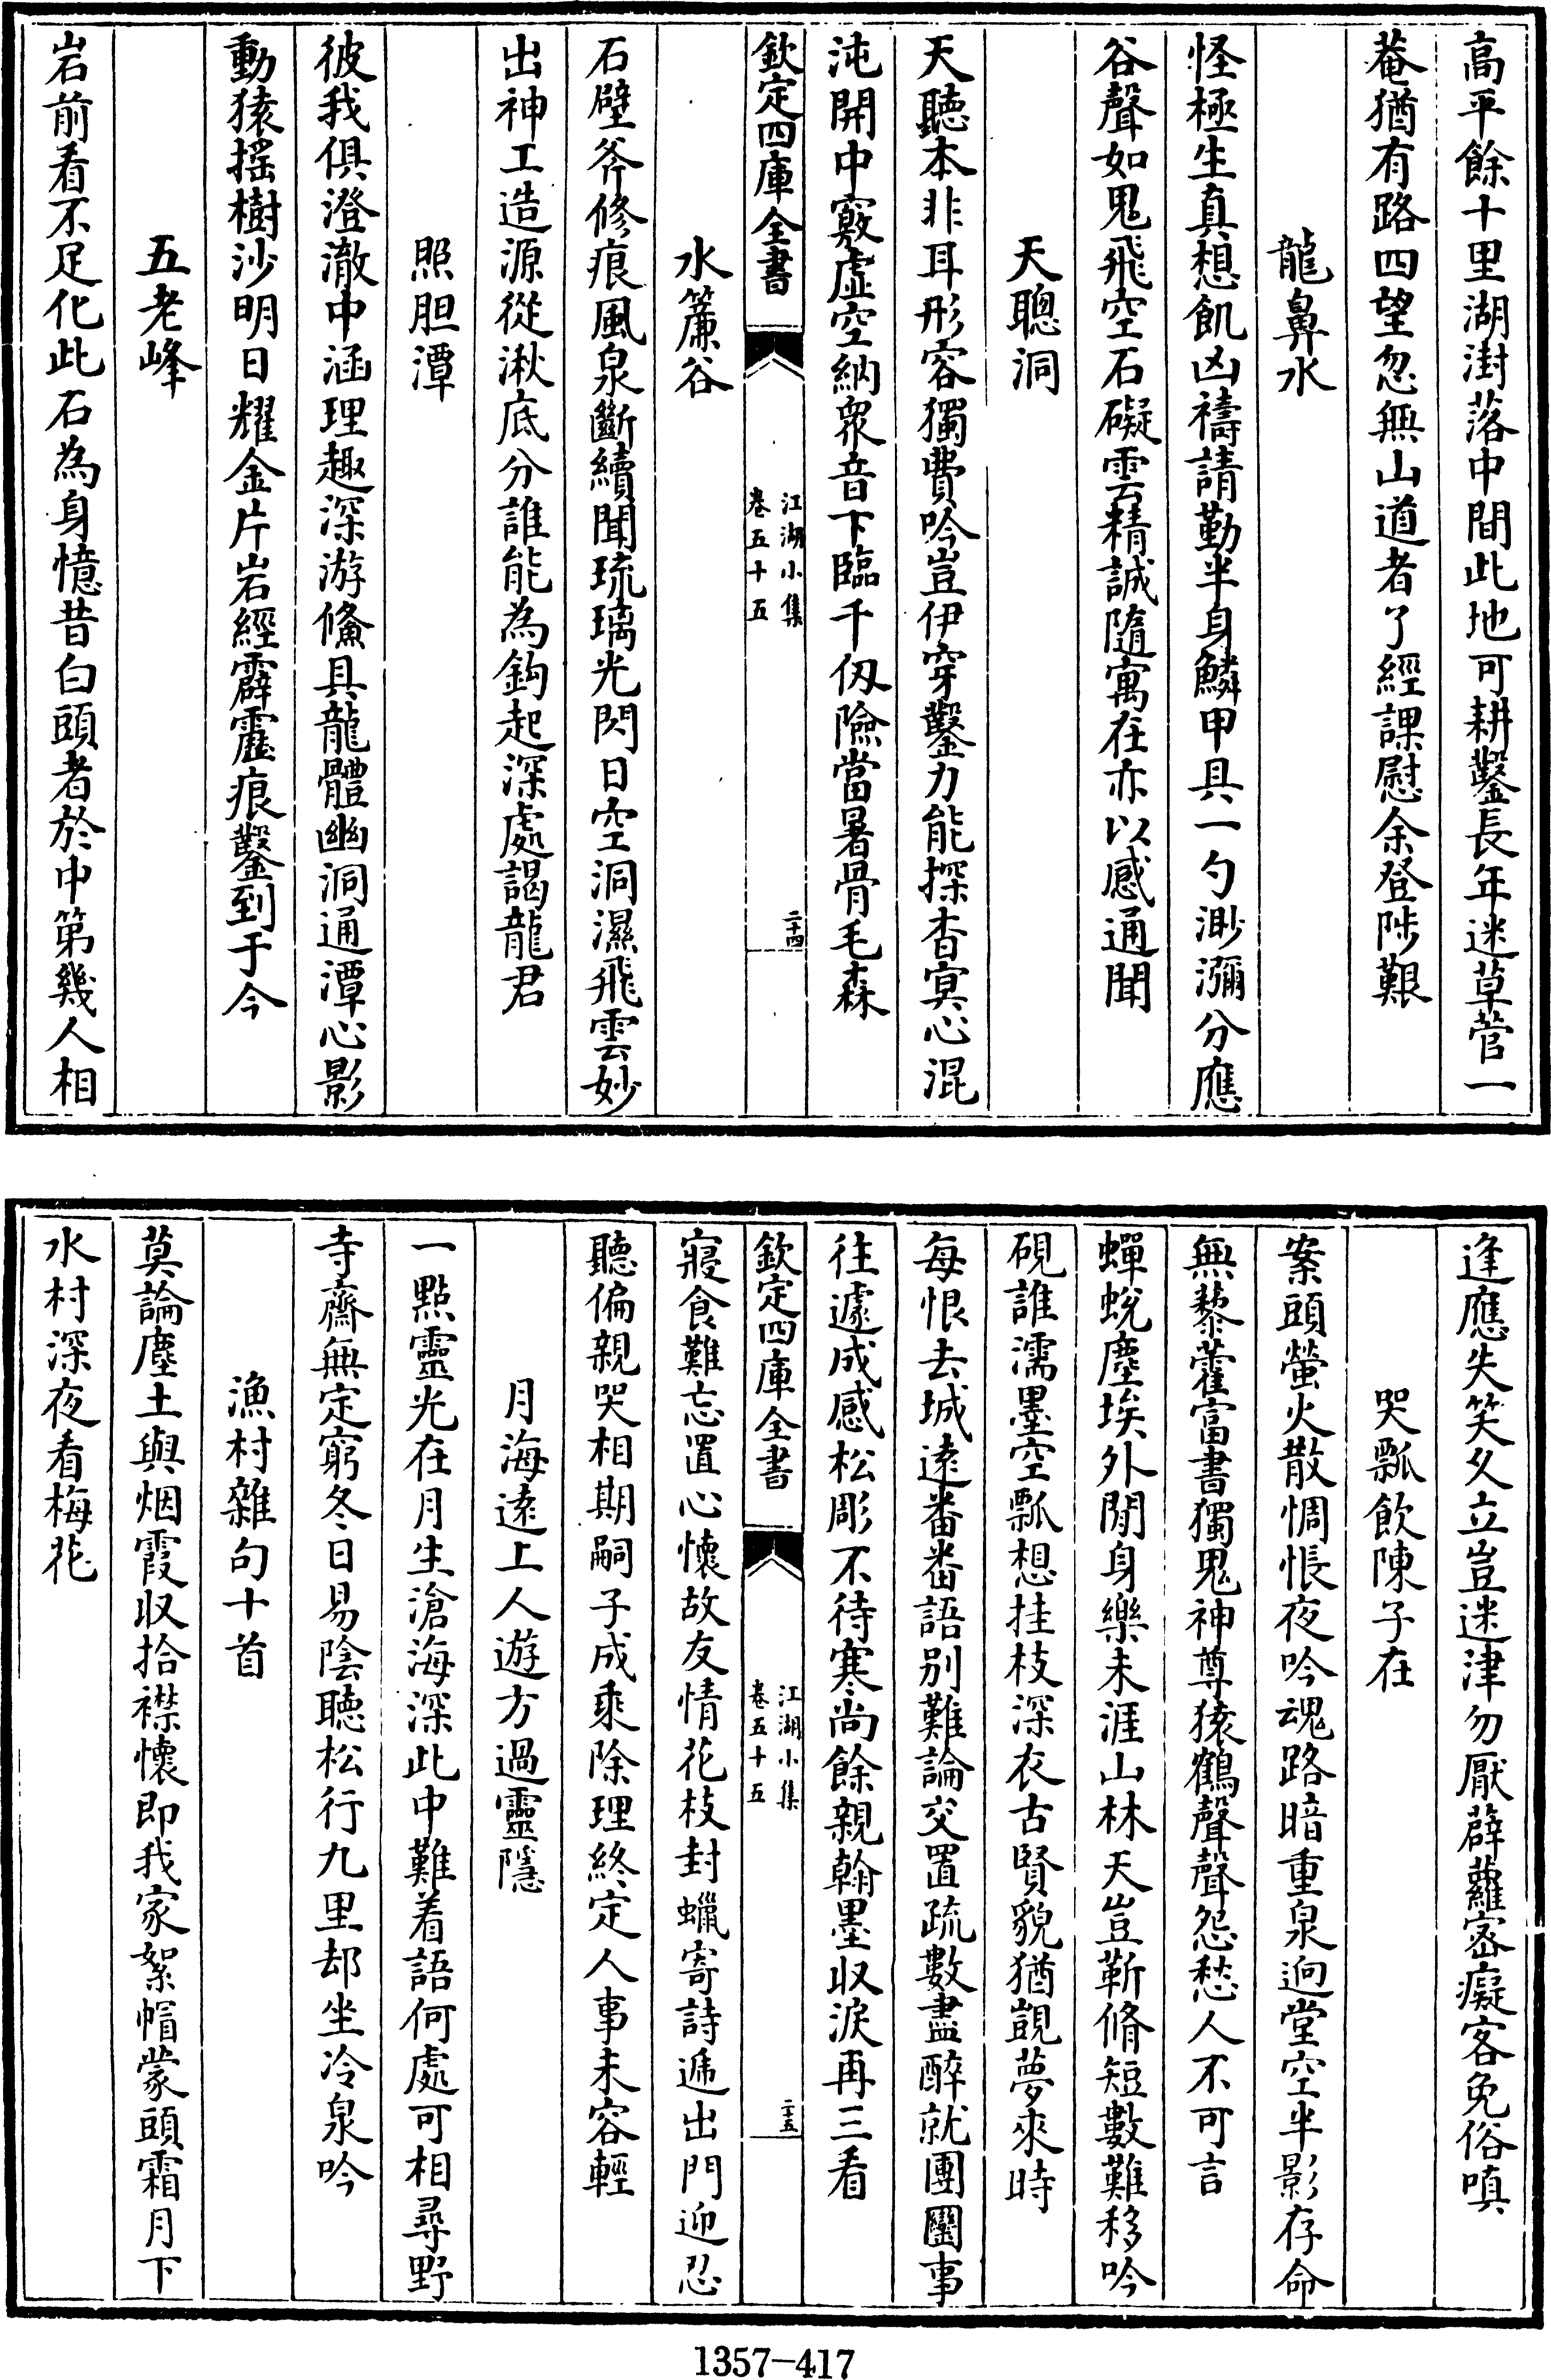 高平餘十里湖澍落中間此地可耕鑿長年迷草菅一
菴猶有路四望忽無山道者了經課慰余登陟艱
龍鼻水
怪極生真想飢凶禱請勤半身鱗甲具一勺渺瀰分應
谷聲如鬼飛空石礙雲精誠隨寓在亦以感通聞
天聰洞
天聽本非耳形容獨費吟豈伊穿鑿力能探杳冥心混
沌開中竅虛空納衆音下臨千仭險當暑骨毛森
欽定四庫全書
江湖小集
卷五十五
二十四
水簾谷
石壁斧修痕風泉斷續聞琉璃光閃日空洞濕飛雲妙
出神工造源從湫底分誰能為鈎起深處謁龍君
照胆潭
彼我俱澄澈中涵理趣深游鯈具龍體幽洞通潭心影
動猿搖樹沙明日耀金片岩經霹靂痕鑿到于今
五老峰
岩前看不足化此石為身憶昔白頭者於中第幾人相
逢應失笑久立豈迷津勿厭薜蘿密癡客免俗嗔
哭瓢飲陳子在
案頭螢火散惆悵夜吟魂路暗重泉逈堂空半影存命
無藜藿富書獨鬼神尊猿鶴聲聲怨愁人不可言
蟬蛻塵埃外閒身樂未涯山林天豈靳脩短數難移吟
硯誰濡墨空瓢想挂枝深衣古賢貌猶覬夢來時
每恨去城逺番番語别難論交置疏數盡醉就團圞事
往遽成感松彫不待寒尚餘親翰墨収淚再三看
欽定四庫全書
江湖小集
卷五十五
二十五
寢食難忘置心懷故友情花枝封蠟寄詩遞出門迎忍
聽偏親哭相期嗣子成乘除理終定人事未容輕
月海逺上人遊方過靈隱
一點靈光在月生滄海深此中難着語何處可相尋野
寺齋無定窮冬日易陰聽松行九里却坐冷泉吟
漁村雜句十首
莫論塵土與烟霞収拾襟懷即我家絮帽蒙頭霜月下
水村深夜看梅花
1357-417